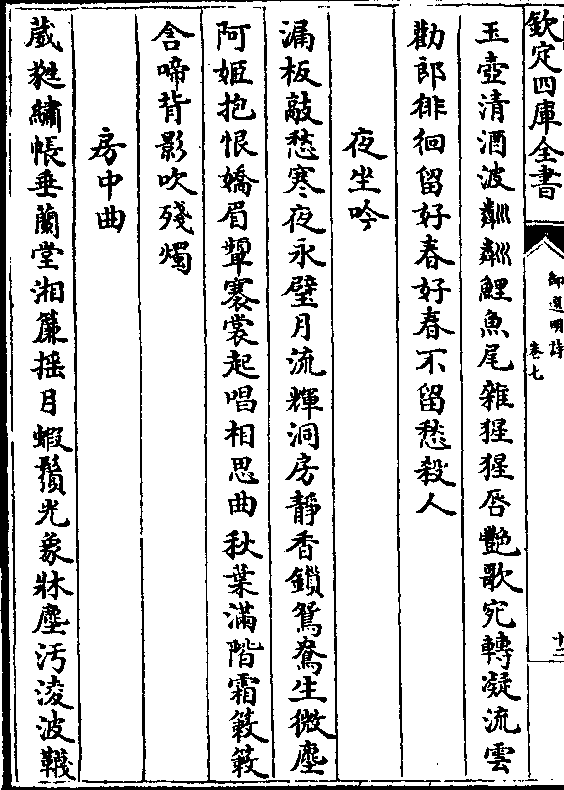 欽定四庫全書
御選明詩
卷七
十二
玉壺清酒波粼粼鯉魚尾雜猩猩唇艷歌宛轉凝流雲
勸郎徘徊留好春好春不留愁殺人
夜坐吟
漏板敲愁寒夜永璧月流輝洞房靜香鎖鴛鴦生微塵
阿姬抱恨嬌眉顰褰裳起唱相思曲秋葉滿階霜簌簌
含啼背影吹殘燭
房中曲
葳蕤繡帳垂蘭堂湘簾搖月蝦鬚光象牀塵汚淩波韈